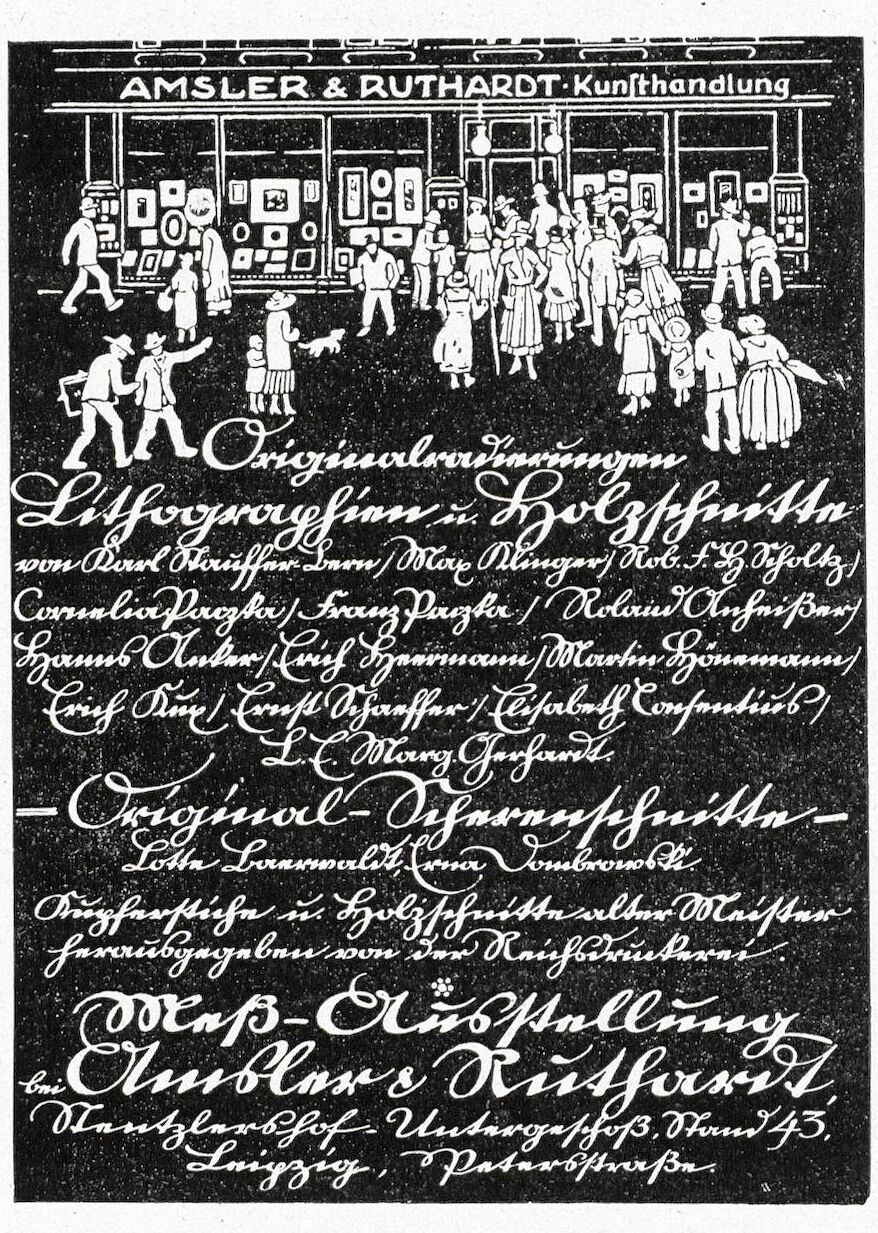 AMSLER & RUTHARDT · Kunsthandlung
Originalradierungen
Lithographien u. Holzschnitte
von Karl Stauffer-Bern / Max Klinger / Rob. F. K. Scholtz /
Cornelia Paczka / Franz Paczka / Roland Anheißer /
Hanns Anker / Erich Heermann / Martin Hönemann /
Erich Kux / Ernst Schaeffer / Elisabeth Consentius /
L. E. Marg. Gerhardt.
— Original-Scherenschnitte —
Lotte Baerwaldt, Erna Dombrowski.
Kupferstiche u. Holzschnitte alter Meister
herausgegeben von der Reichsdruckerei.
Meß-Ausstellung
bei Amsler & Ruthardt,
Stentzlershof - Untergeschoß, Stand 43,
Leipzig, Petersstraße.